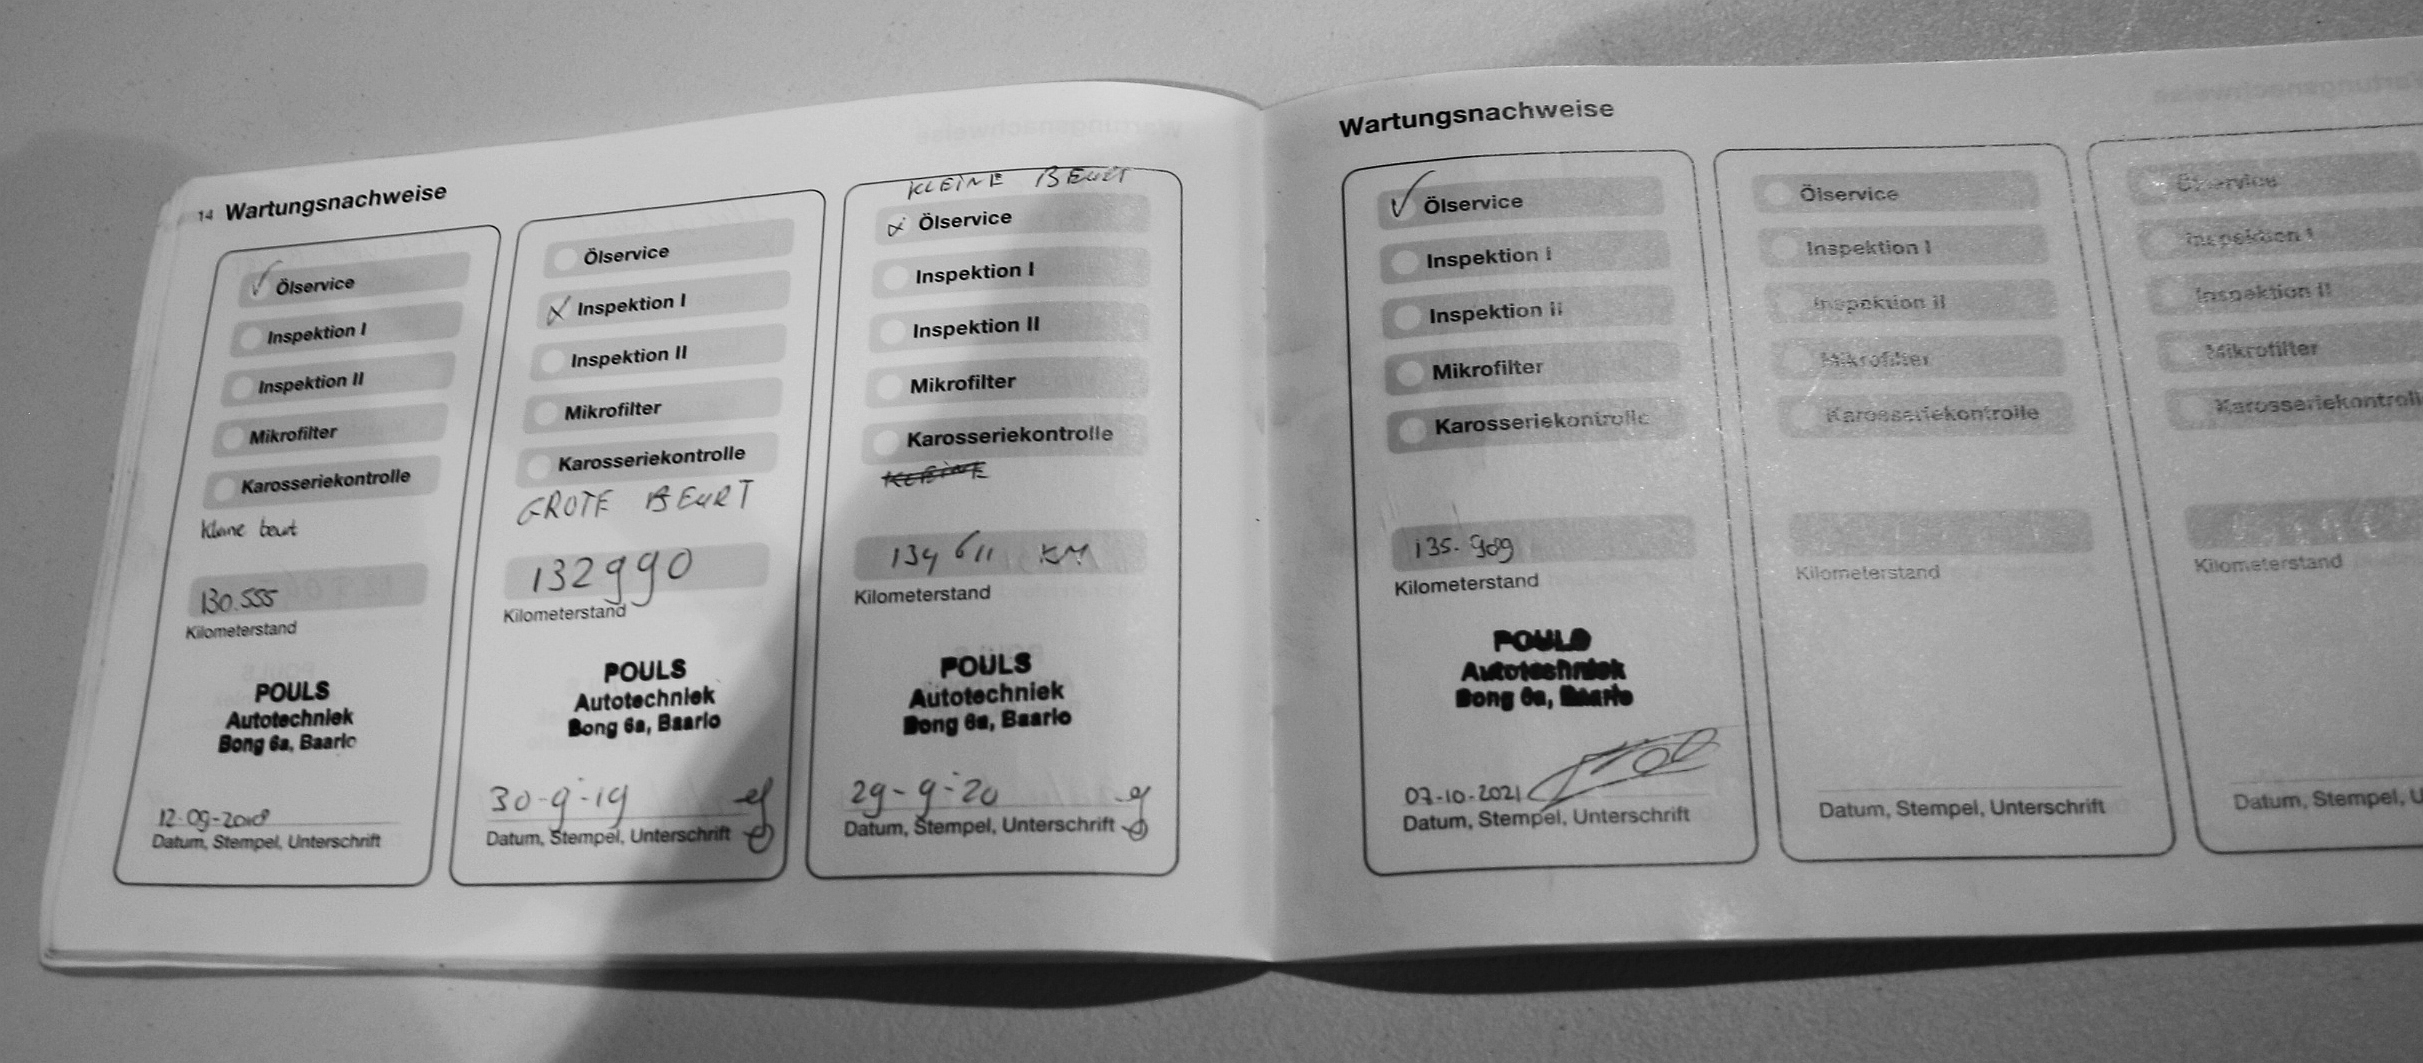 14 Wartungsnachweise
Ölservice
Inspektion I
Inspektion II
Mikrofilter
Karosseriekontrolle
Kleine beurt
130.555
Kilometerstand
POULS
Autotechniek
Bong 6a, Baarlo
12-09-2018
Datum, Stempel, Unterschrift
Ölservice
Inspektion I
Inspektion II
Mikrofilter
Karosseriekontrolle
GROTE BEURT
132990
Kilometerstand
POULS
Autotechniek
Bong 6a, Baarlo
30-9-19
Datum, Stempel, Unterschrift
KLEINE BEURT
Ölservice
Inspektion I
Inspektion II
Mikrofilter
Karosseriekontrolle
KLEINE
134611 KM
Kilometerstand
POULS
Autotechniek
Bong 6a, Baarlo
29-9-20
Datum, Stempel, Unterschrift
Wartungsnachweise
Ölservice
Inspektion I
Inspektion II
Mikrofilter
Karosseriekontrolle
135.909
Kilometerstand
POULS
Autotechniek
Bong 6a, Baarlo
07-10-2021
Datum, Stempel, Unterschrift
Ölservice
Inspektion I
Inspektion II
Mikrofilter
Karosseriekontrolle
Kilometerstand
Datum, Stempel, Unterschrift
Ölservice
Inspektion I
Inspektion II
Mikrofilter
Karosseriekontroll
Kilometerstand
Datum, Stempel, U